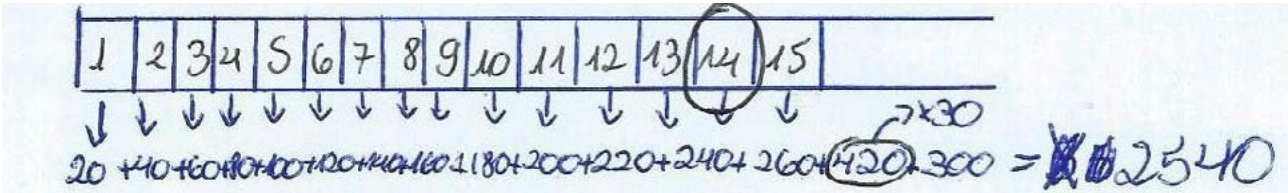 1 2 3 4 5 6 7 8 9 10 11 12 13 14 15
x30
20+40+60+80+100+120+140+160+180+200+220+240+260+420+300 = 2540